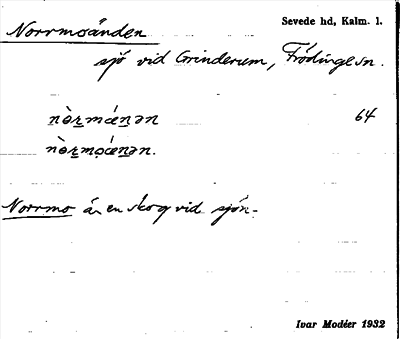 Norrmoänden
Sevede hd, Kalm. l.
sjö vid Grinderum, Frödinge sn.
nòrmǽnən 64
nòrmoǽnən.
Norrmo är en skog vid sjön.
Ivar Modéer 1932